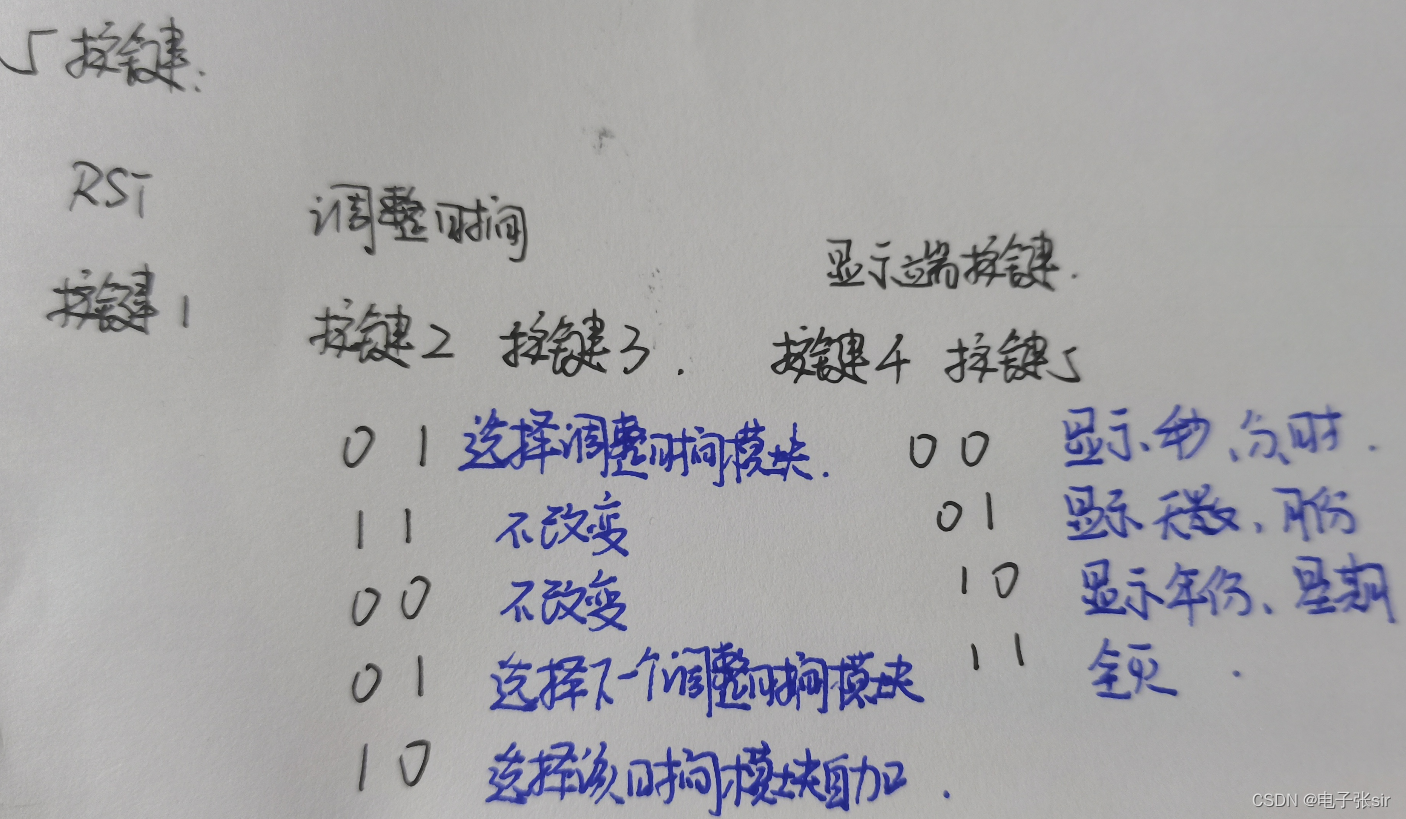 5按键:
RST
调整时间
显示端按键.
按键1
按键2 按键3.
按键4 按键5
01 选择调整时间模块.
00 显示秒、分、时.
11 不改变
01 显示天数、月份
00 不改变
10 显示年份、星期
01 选择下一个调整时间模块
11 全灭.
10 选择该时间模块自加.
CSDN @电子张sir